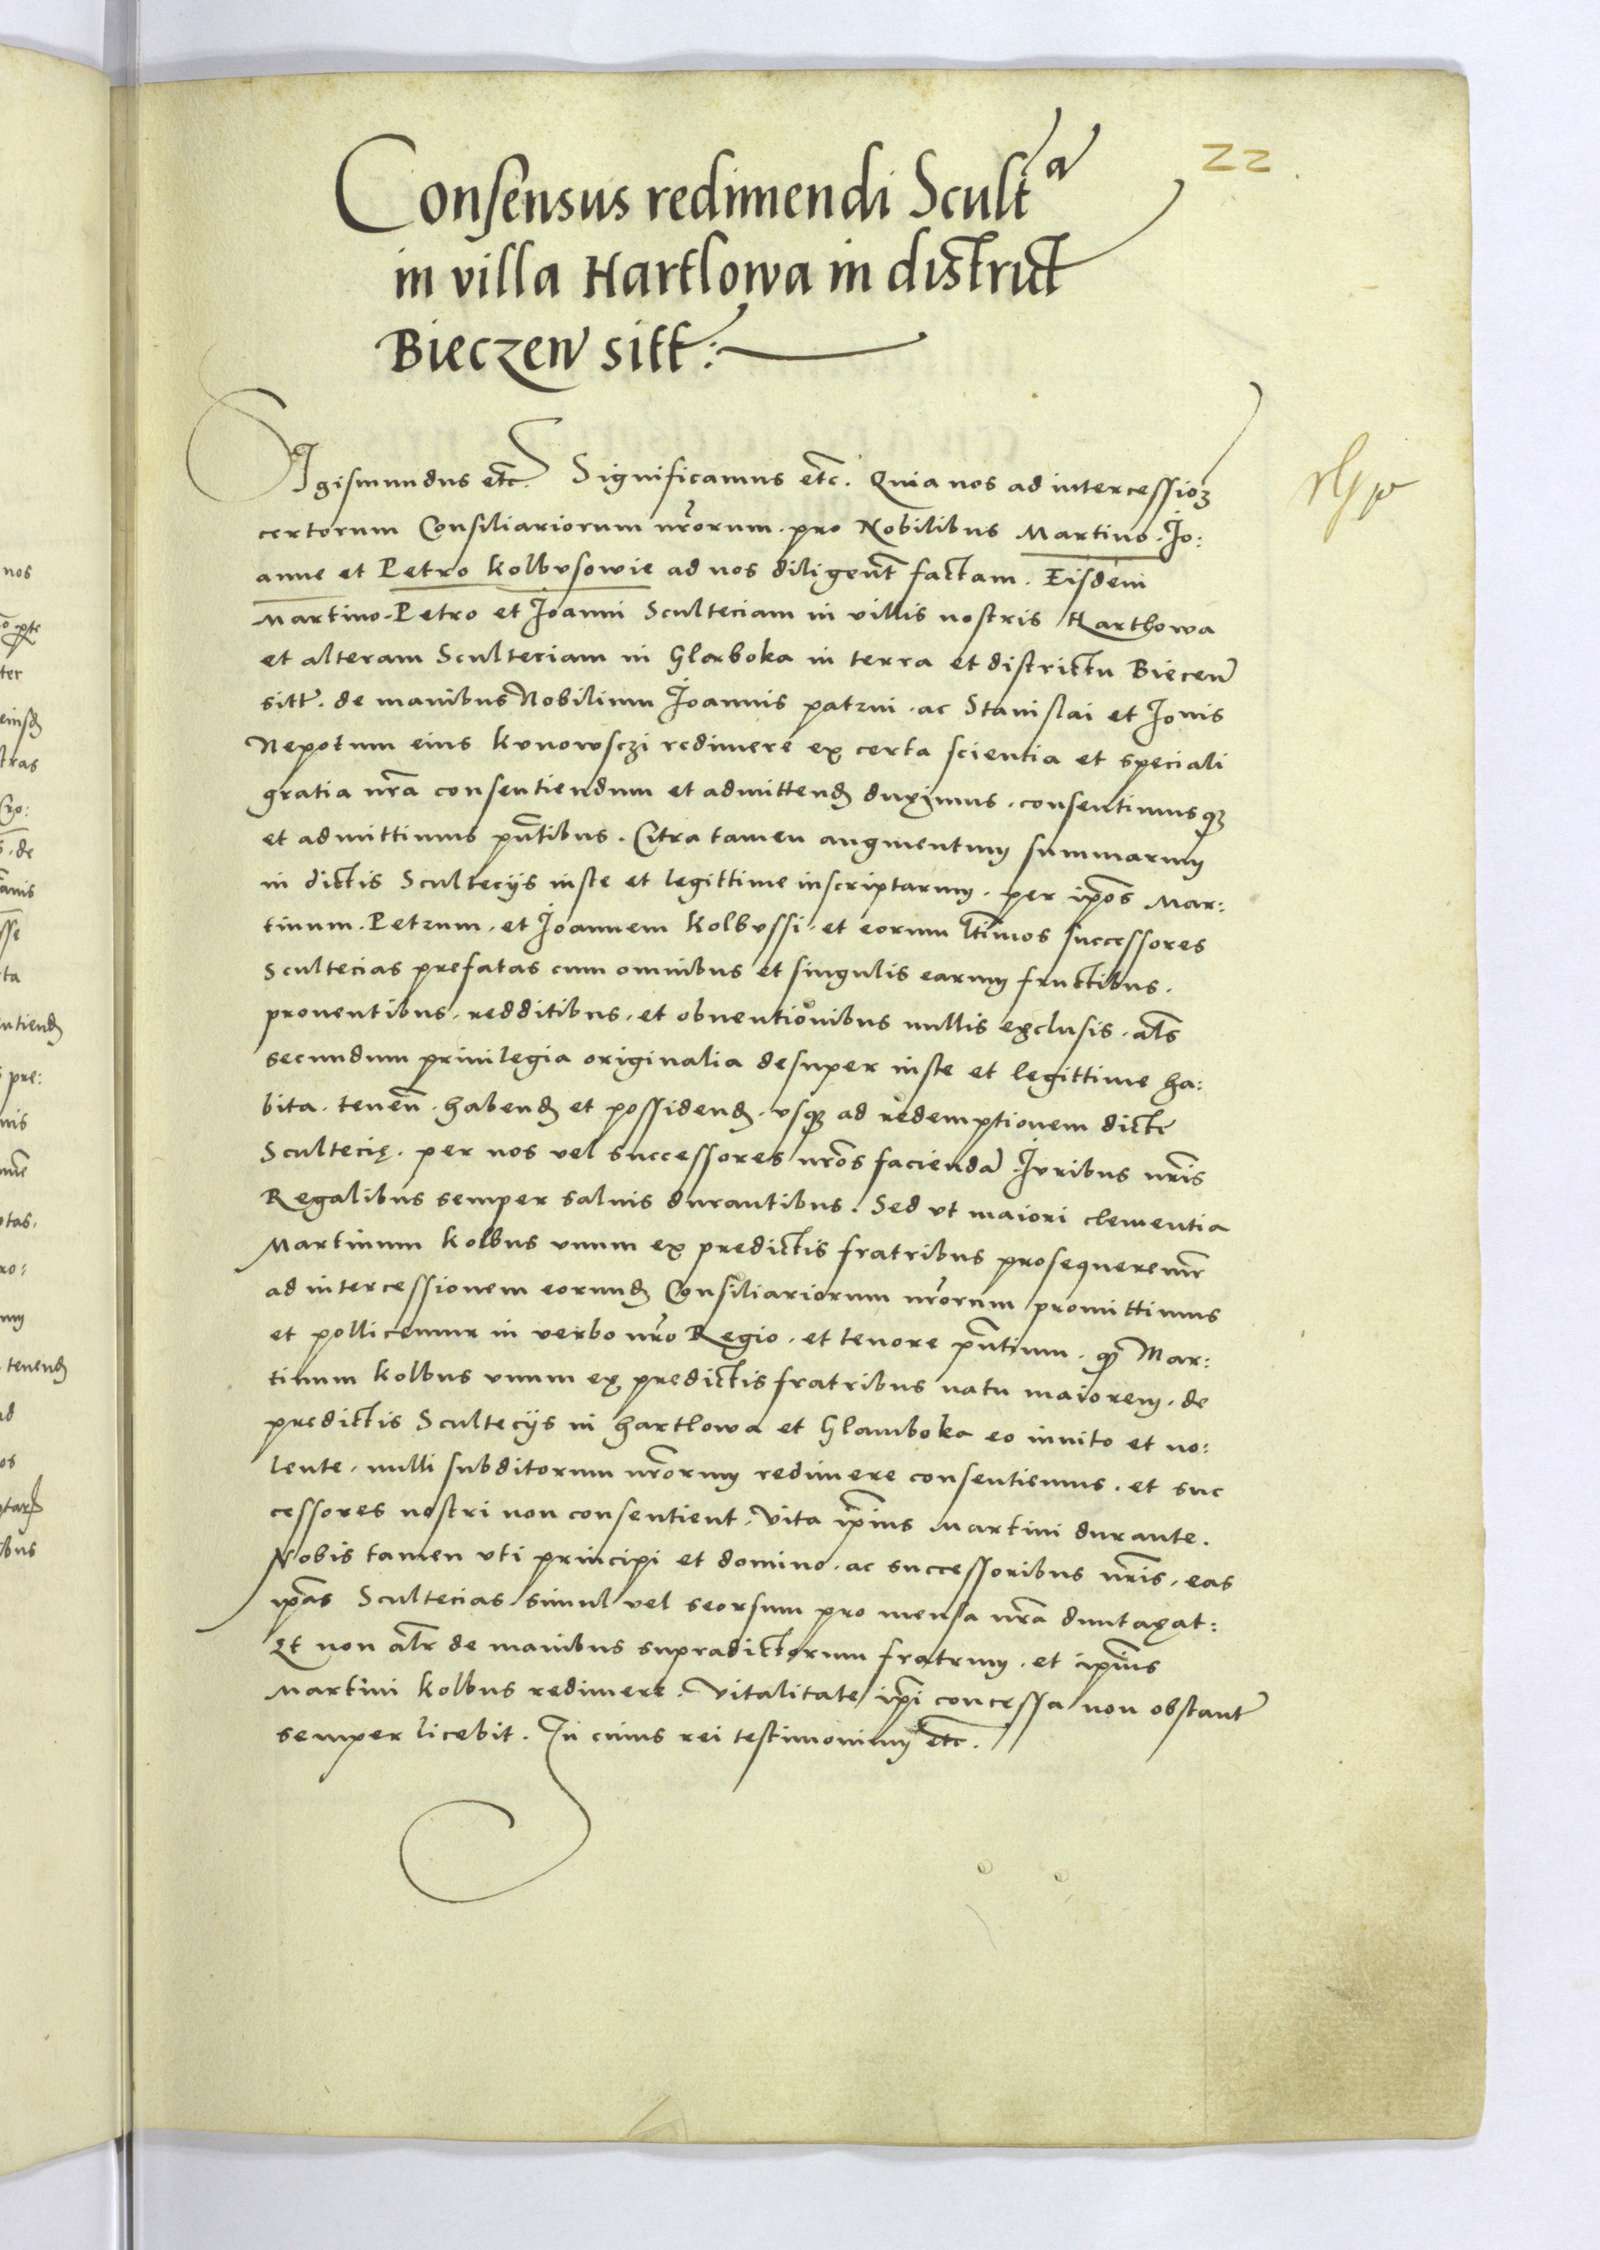 22
Consensus redimendi Scult^a
in villa Hartlowa in district
Bieczen sitt:
Sigismundus etc. Significamus etc. Quia nos ad intercessioꝫ
certorum Consiliariorum nr̃orum. pro Nobilibus Martino. Jo:
anne et Petro Kolbusowie ad nos diligent̃ factam. Eisdem
Martino. Petro et Joanni Sculteciam in villis nostris Harthowa
et alteram Sculteciam in Glaboka in terra et districtu Biecen̄
sitt. de manibus Nobilium Joannis patrui. ac Stanislai et Jonis
Nepotum eius Kunowsczi redimere ex certa scientia et speciali
gratia nr̃a consentiendum et admittend duximus. consentimusqꝫ
et admittimus pñtibus. Citra tamen augmentum summarum
in dictis Sculteciis iuste et legittime inscriptarum. per ip̃os Mar:
tinum. Petrum. et Joannem Kolbussi. et eorum ltĩmos successores
Scultecias prefatas cum omnibus et singulis earum fructibus.
proventibus. redditibus. et obventionibus nullis exclusis. al̃s
secundum privilegia originalia desuper iuste et legittime ha:
bita. teneñ. habend et possidend. usqꝫ ad redemptionem dicte
Scultecię. per nos vel successores nr̃os faciendā. Juribus nr̃is
Regalibus semper salvis durantibus. Sed ut maiori clementia
Martinum Kolbus unum ex predictis fratribus prosequeremur
ad intercessionem eorund Consiliariorum nr̃orum promittimus
et pollicemur in verbo nr̃o Regio. et tenore pñtium. qꝫ Mar:
tinum Kolbus unum ex predictis fratribus natu maiorem. de
predictis Sculteciis in hartlowa et Glamboka eo invito et no:
lente. nulli subditorum nr̃orum redimere consentiemus. et suc
cessores nostri non consentient. Vita ip̃ius Martini durante.
Nobis tamen uti principi et domino. ac successoribus nr̃is. eas
ip̃as Scultecias simul vel seorsum pro mensa nr̃a duntaxat:
Et non al̃r de manibus supradictorum fratrum. et ip̃ius
Martini Kolbus redimere. Vitalitate ip̃i concessa non obstant̃
semper licebit. In cuius rei testimonium etc.